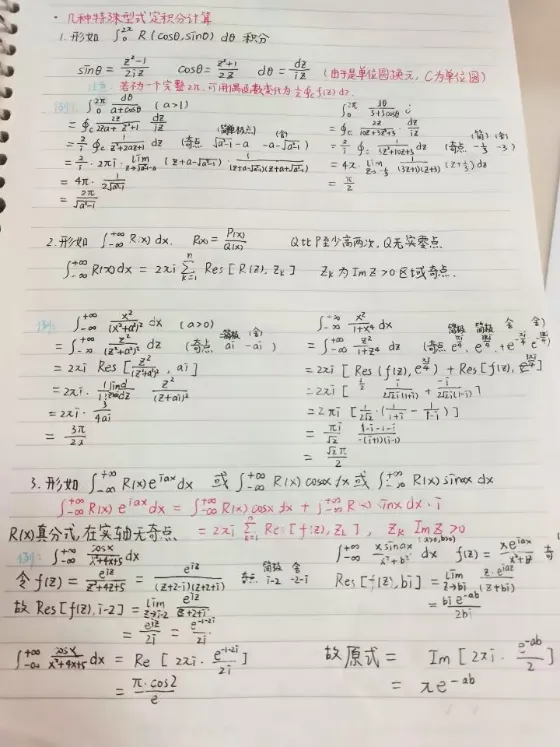 · 几种特殊型式定积分计算
1. 形如 ∫₀^{2π} R(cosθ, sinθ) dθ 积分
sinθ = (z²-1)/(2iz)  cosθ = (z²+1)/(2z)  dθ = dz/(iz) (由于是单位圆换元, C为单位圆)
注意: 若不为一个完整2π, 可用偶函数变化为 ½∮c f(z) dz.
例: ∫₀^{2π} dθ/(a+cosθ) (a>1)
= ∮c 2z/(2za+z²+1) dz/(iz)
= 2/i ∮c 1/(z²+2az+1) dz (奇点 √(a²-1)-a  -a-√(a²-1))
= 2/i · 2πi · lim (z+a-√(a²-1)) · 1/((z+a-√(a²-1))(z+a+√(a²-1)))
= 4π · 1/(2√(a²-1))
= 2π/√(a²-1)
∫₀^{2π} dθ/(5+3cosθ)
= ∮c 2z/(10z+3z²+3) · dz/(iz)
= 2/i ∮c 1/(3z²+10z+3) dz (奇点 -1/3 -3)
= 4π · lim 1/((3z+1)(z+3)) (z+1/3)
= π/2
2. 形如 ∫_{-∞}^{+∞} R(x) dx. R(x) = P(x)/Q(x)  Q比P至少高两次, Q无实零点.
∫_{-∞}^{+∞} R(x) dx = 2πi Σ_{k=1}^{n} Res[R(z), z_k]  z_k 为 Im z > 0 区域奇点.
例: ∫_{-∞}^{+∞} x²/(x²+a²)² dx (a>0)
= ∫_{-∞}^{+∞} z²/(z²+a²)² dz (奇点 ai -ai)
= 2πi Res[z²/(z²+a²)², ai]
= 2πi · z²/(z+ai)²
= 2πi · 3/(4ai)
= 3π/2a
∫_{-∞}^{+∞} x²/(1+x⁴) dx
= ∫_{-∞}^{+∞} z²/(1+z⁴) dz
= 2πi [Res(f(z), e^{πi/4}) + Res[f(z), e^{3πi/4}]
= 2πi [i/(2√2i(1+i)) + -i/(2√2i(1-i))]
= 2πi [1/(2√2) · (1/(1+i) - 1/(1-i))]
= πi/√2 (1-i-1-i)/(-(i+1)(i-1))
= √2π/2
3. 形如 ∫_{-∞}^{+∞} R(x) e^{iax} dx 或 ∫_{-∞}^{+∞} R(x) cosax dx 或 ∫_{-∞}^{+∞} R(x) sinax dx
∫_{-∞}^{+∞} R(x) e^{iax} dx = ∫_{-∞}^{+∞} R(x) cosx dx + ∫_{-∞}^{+∞} R(x) sinx dx · i
R(x)真分式, 在实轴无奇点 = 2πi Σ_{k=1}^{n} Res[f(z), z_k], z_k Im z > 0
例: ∫_{-∞}^{+∞} cosx/(x²+4x+5) dx
令 f(z) = e^{iz}/(z²+4z+5) = e^{iz}/((z+2-i)(z+2+i)) 奇点 i-2 -2-i
故 Res[f(z), i-2] = lim_{z→i-2} e^{iz}/(z+2+i)
= e^{iz}/2i = e^{-1-2i}/2i
∫_{-∞}^{+∞} cosx/(x²+4x+5) dx = Re[2πi · e^{-1-2i}/2i]
= π·cos2/e
∫_{-∞}^{+∞} x sinax/(x²+b²) dx (a>0, b>0) f(z) = xe^{iax}/(x²+b²) 奇
Res[f(z), bi] = lim_{z→bi} z·e^{iaz}/(z+bi)
= bi e^{-ab}/2bi
故原式 = Im[2πi · e^{-ab}/2]
= πe^{-ab}